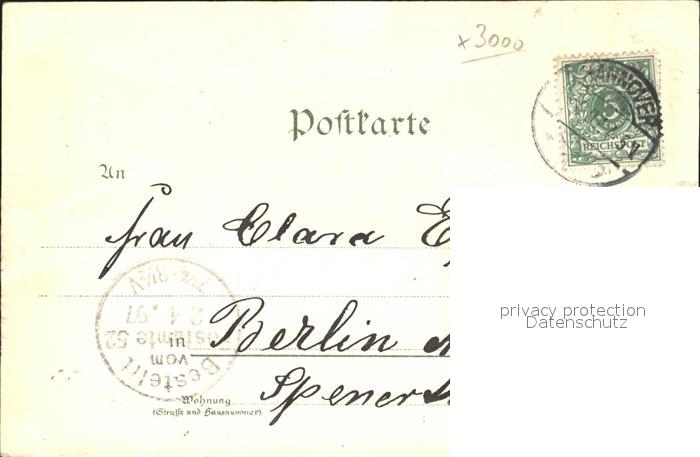 x 3000
HANNOVER
5
PFENNIG
REICHSPOST
Postkarte
An
Frau Clara
privacy protection
Datenschutz
in Berlin
Spener
Bestellt
vom
Postamte 52
2 4. 97
7¼-8½V
Wohnung
(Straße und Hausnummer)